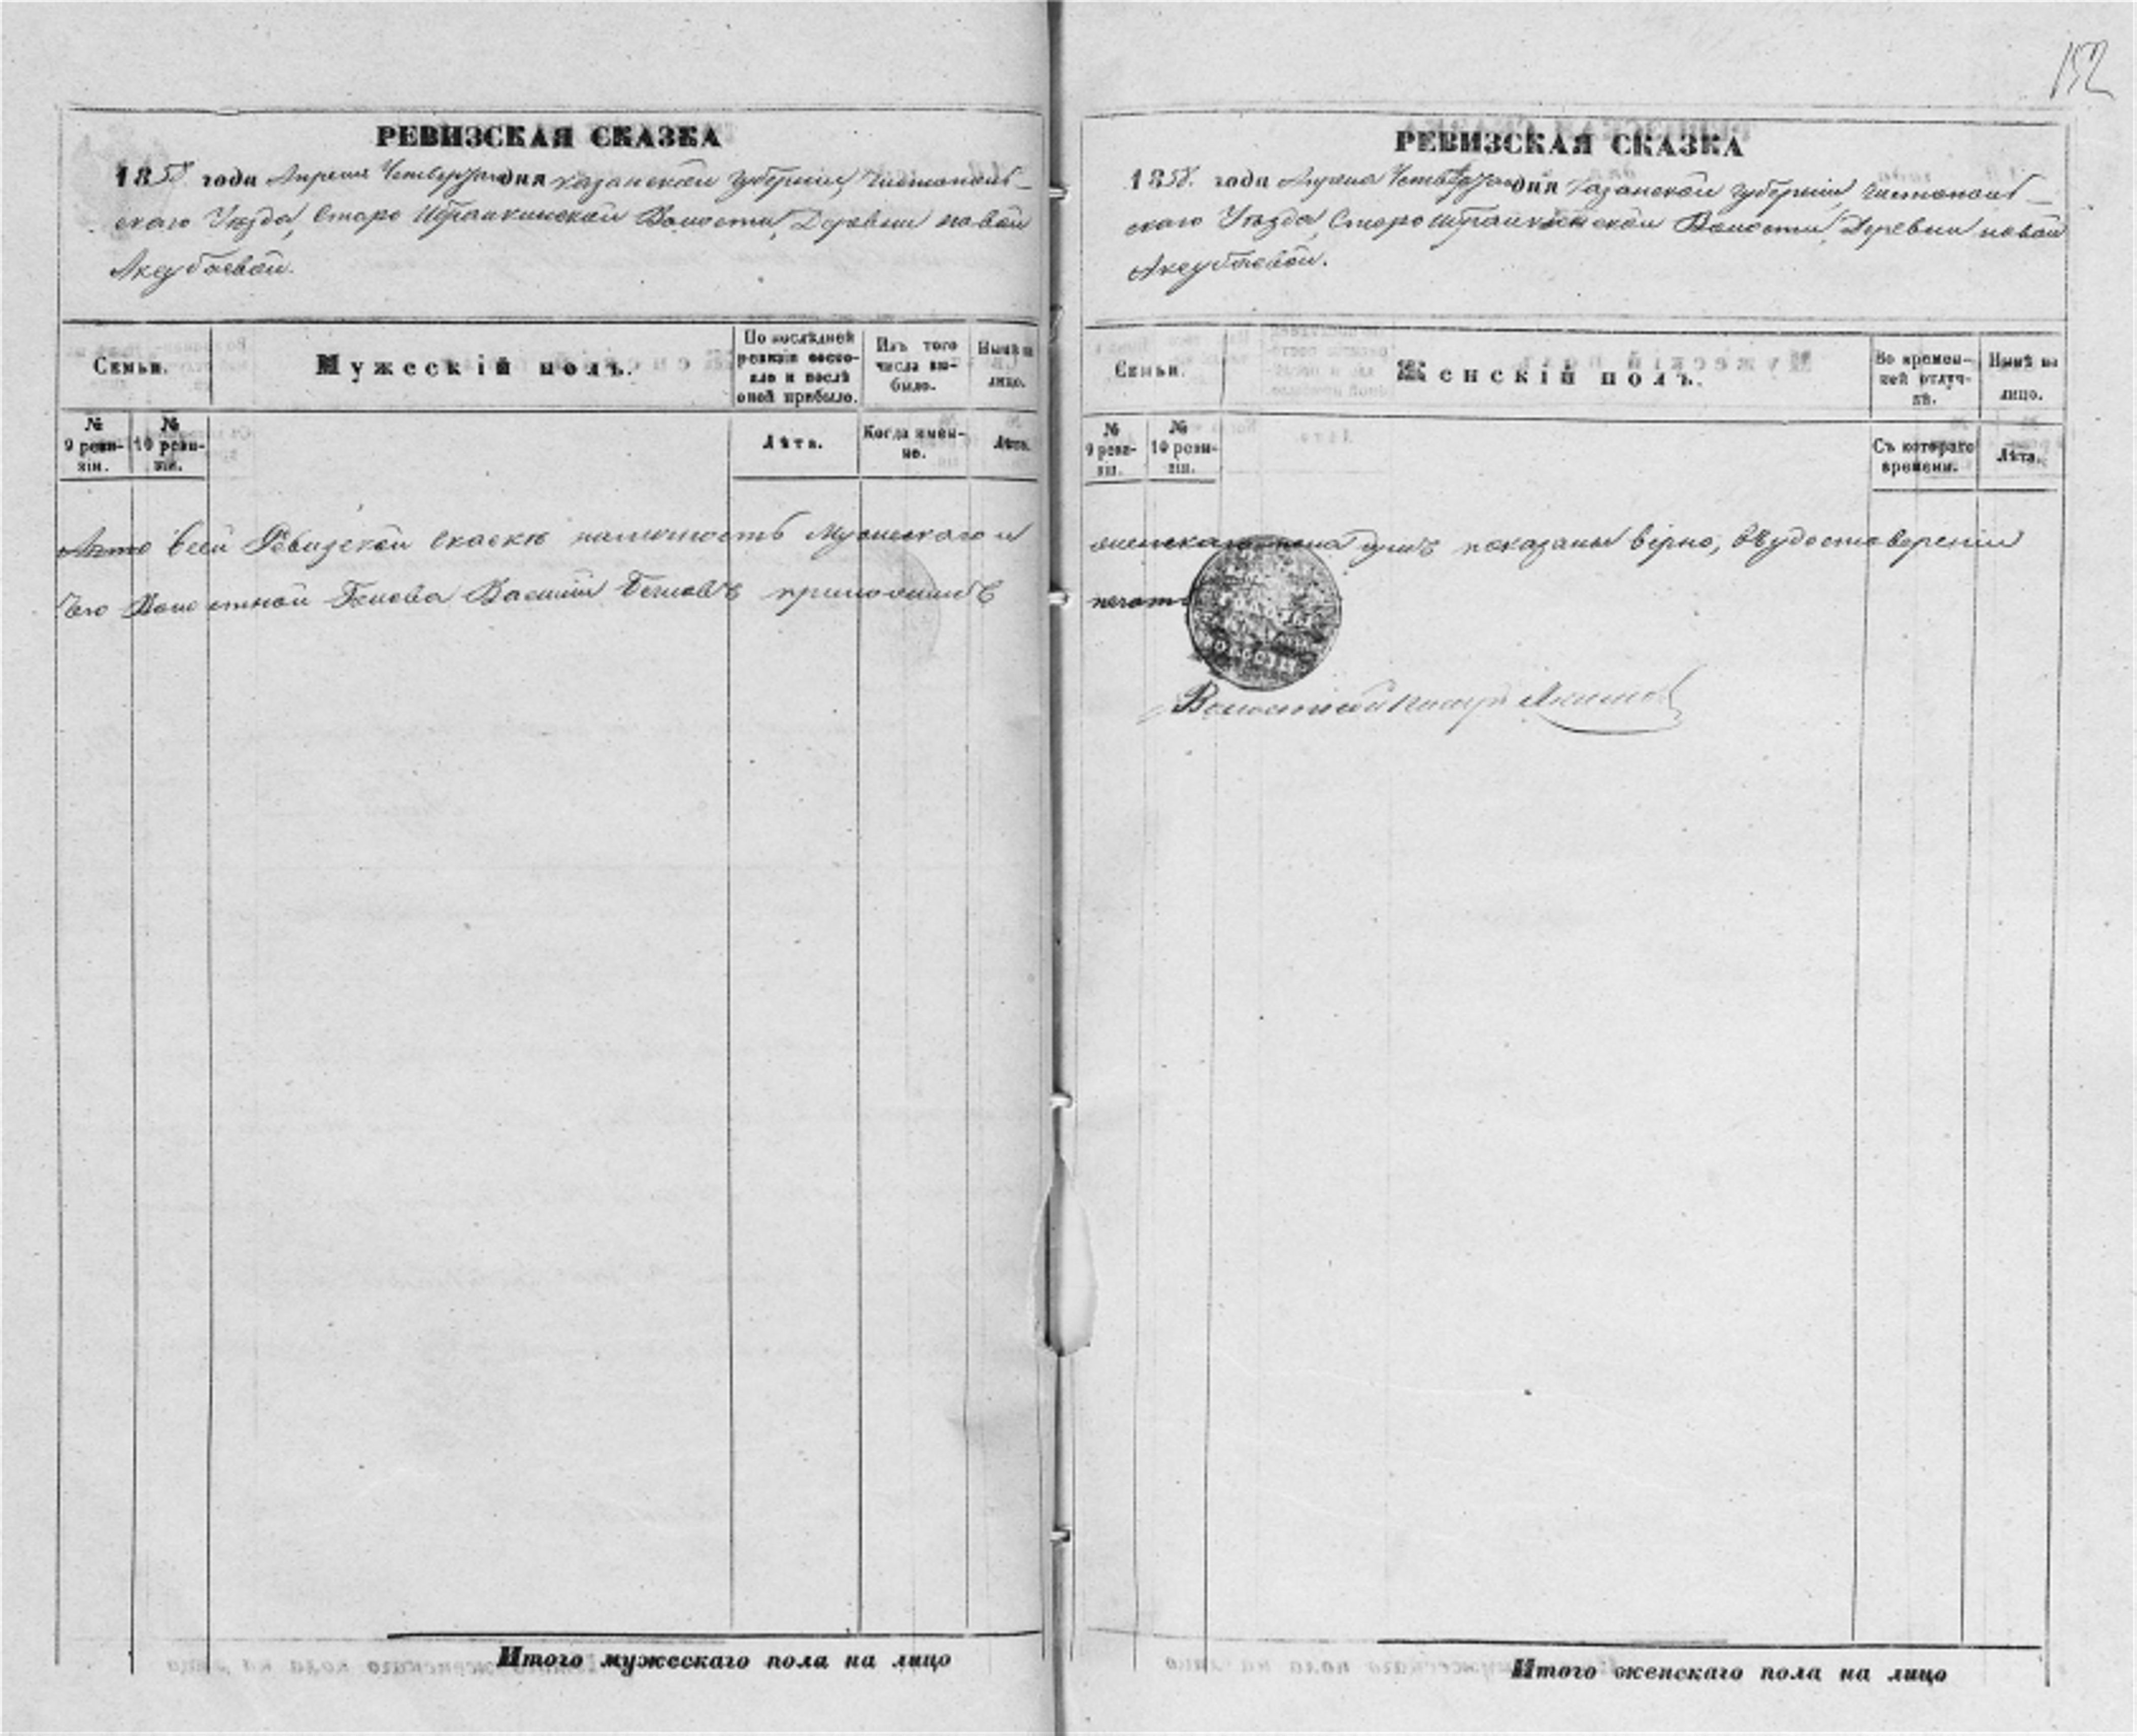 152
РЕВИЗСКАЯ СКАЗКА
1858 года Апреля Четвертаго дня Казанской губерніи, Чистополь-
скаго Уѣзда, Старо Ибрайкинской Волости, Деревни новой
Аксубаевой.
Семьи.
Мужескій полъ.
По послѣдней
ревизіи состо-
яло и послѣ
оной прибыло.
Изъ того
числа вы-
было.
Нынѣ на
лицо.
№
9 реви-
зіи.
№
10 реви-
зіи.
Лѣта.
Когда имен-
но.
Лѣта.
Что въ сей Ревизской сказкѣ наличность Мужескаго и
его Волостной Голова Василій приложилъ
Итого мужескаго пола на лицо
РЕВИЗСКАЯ СКАЗКА
1858 года Апреля Четвертаго дня Казанской губерніи, Чистополь-
скаго Уѣзда, Старо Ибрайкинской Волости, Деревни новой
Аксубаевой.
Семьи.
Женскій полъ.
Во времен-
ной отлуч-
кѣ.
Нынѣ на
лицо.
№
9 реви-
зіи.
№
10 реви-
зіи.
Съ котораго
времени.
Лѣта.
женскаго пола душъ показаны вѣрно, въ удостовереніи
печать
ВОЛОСТИ
Волостной писарь Якимов
Итого женскаго пола на лицо